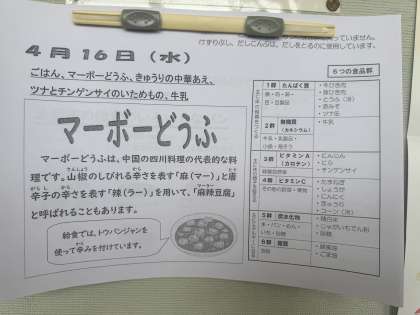 っていません。
けずりぶし、だしこんぶは、だしをとるのに使用しています。
4月16日（水）
ごはん、マーボーどうふ、きゅうりの中華あえ、
ツナとチンゲンサイのいためもの、牛乳
マーボーどうふ
マーボーどうふは、中国の四川料理の代表的な料
理です。山椒のしびれる辛さを表す「麻（マー）」と唐
辛子の辛さを表す「辣（ラー）」を用いて、「麻辣豆腐」
と呼ばれることもあります。
給食では、トウバンジャンを
使って辛みを付けています。
6つの食品群
1群 たんぱく質
魚・肉・卵・
豆・豆製品
・牛ひき肉
・豚ひき肉
・とうふ（冷）
・赤みそ
・ツナ缶
2群 無機質
（カルシウム）
牛乳・乳製品・
小魚・海そう
・牛乳
3群 ビタミンA
（カロテン）
緑黄色野菜
・にんじん
・にら
・チンゲンサイ
4群 ビタミンC
その他の野菜・果物
・たまねぎ
・しょうが
・にんにく
・きゅうり
・コーン（冷）
5群 炭水化物
米・パン・めん・
いも・砂糖
・精白米
・じゃがいもでん粉
・砂糖
6群 脂質
油脂
・ごま油